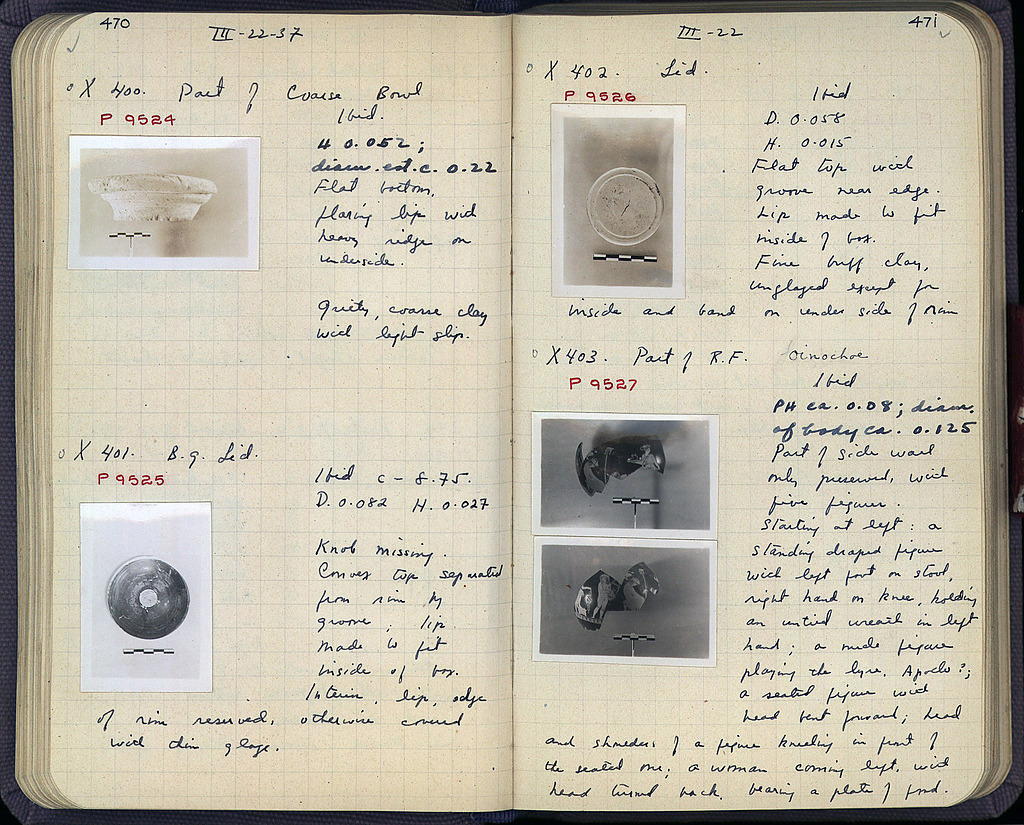 470
III-22-37
X 400. Part of Coarse Bowl
P 9524
Ibid.
H 0.052;
diam. est. c. 0.22
Flat bottom,
flaring lip with
heavy ridge on
underside.
Gritty, coarse clay
with light slip.
X 401. B.g. Lid.
P 9525
Ibid c - 8.75.
D. 0.082 H. 0.027
Knob missing.
Convex top separated
from rim by
groove; lip
made to fit
inside of box.
Interior, lip, edge
of rim reserved, otherwise covered
with thin glaze.
471
III-22
X 402. Lid.
P 9526
Ibid
D. 0.058
H. 0.015
Flat top with
groove near edge.
Lip made to fit
inside of box.
Fine buff clay,
unglazed except for
inside and band on under side of rim
X 403. Part of R.F. oinochoe
P 9527
Ibid
PH ca. 0.08; diam.
of body ca. 0.125
Part of side wall
only preserved, with
five figures.
Starting at left: a
standing draped figure
with left foot on stool,
right hand on knee, holding
an untied wreath in left
hand; a nude figure
playing the lyre, Apollo?;
a seated figure with
head bent forward; head
and shoulders of a figure kneeling in front of
the seated one; a woman coming left, with
head turned back, bearing a plate of food.